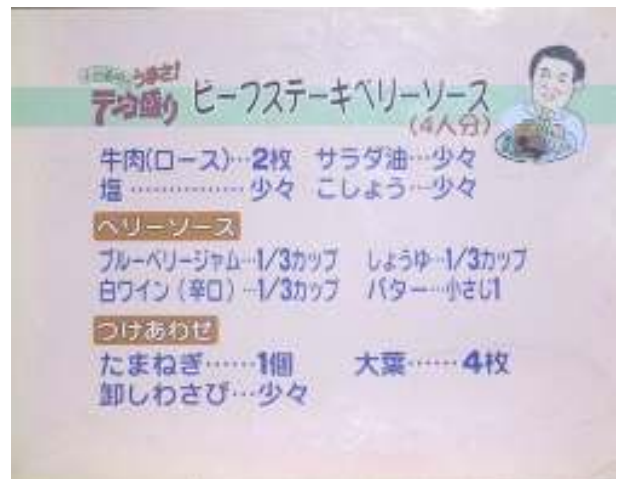 うまさ!
テツ盛り
ビーフステーキベリーソース
(4人分)
牛肉(ロース)…2枚 サラダ油…少々
塩……………少々 こしょう…少々
ベリーソース
ブルーベリージャム…1/3カップ しょうゆ…1/3カップ
白ワイン(辛口)…1/3カップ バター…小さじ1
つけあわせ
たまねぎ……1個 大葉……4枚
卸しわさび…少々